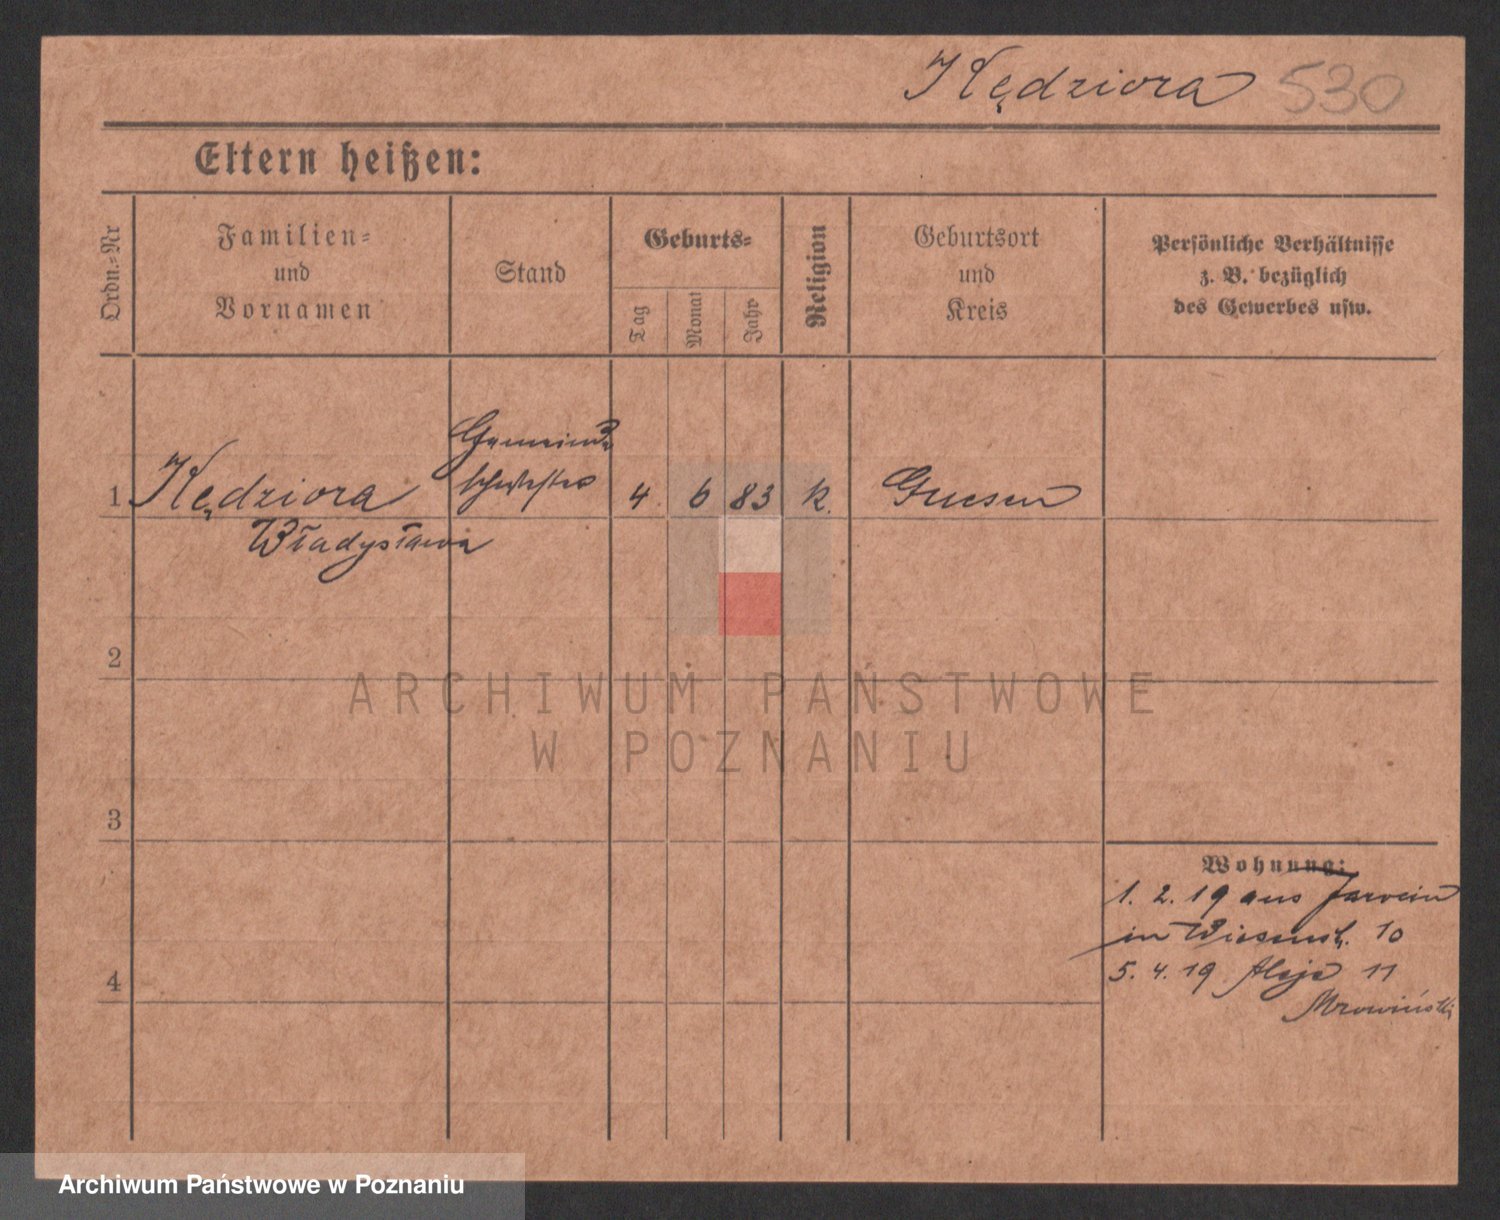 Kędziora 530
Eltern heißen:
Ordn.-Nr
Familien-
und
Vornamen
Stand
Geburts-
Tag
Monat
Jahr
Religion
Geburtsort
und
Kreis
Persönliche Verhältnisse
z. B. bezüglich
des Gewerbes usw.
Gemeinde
schwester
1 Kędziora 4 6 83 k. Gnesen
Władysława
2
3
4
Wohnung:
1. 2. 19 aus Jarocin
in Wiesenstr. 10
5. 4. 19 Aleje 11
Mrowiński
ARCHIWUM PAŃSTWOWE
W POZNANIU
Archiwum Państwowe w Poznaniu